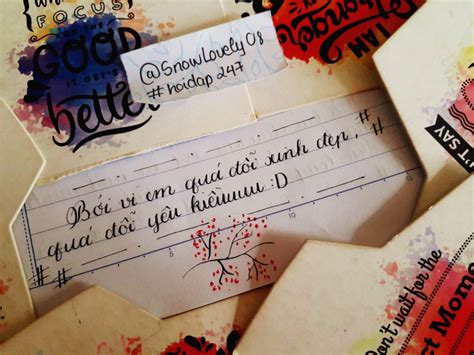 FOCUS
ON THE
GOOD
IT GET'S
better
@SnowLovely08
#hoidap247
I AM
Bởi vì em quá đỗi xinh đẹp,
quá đỗi yêu kiềuuuu :D
SAY
Don't wait for the